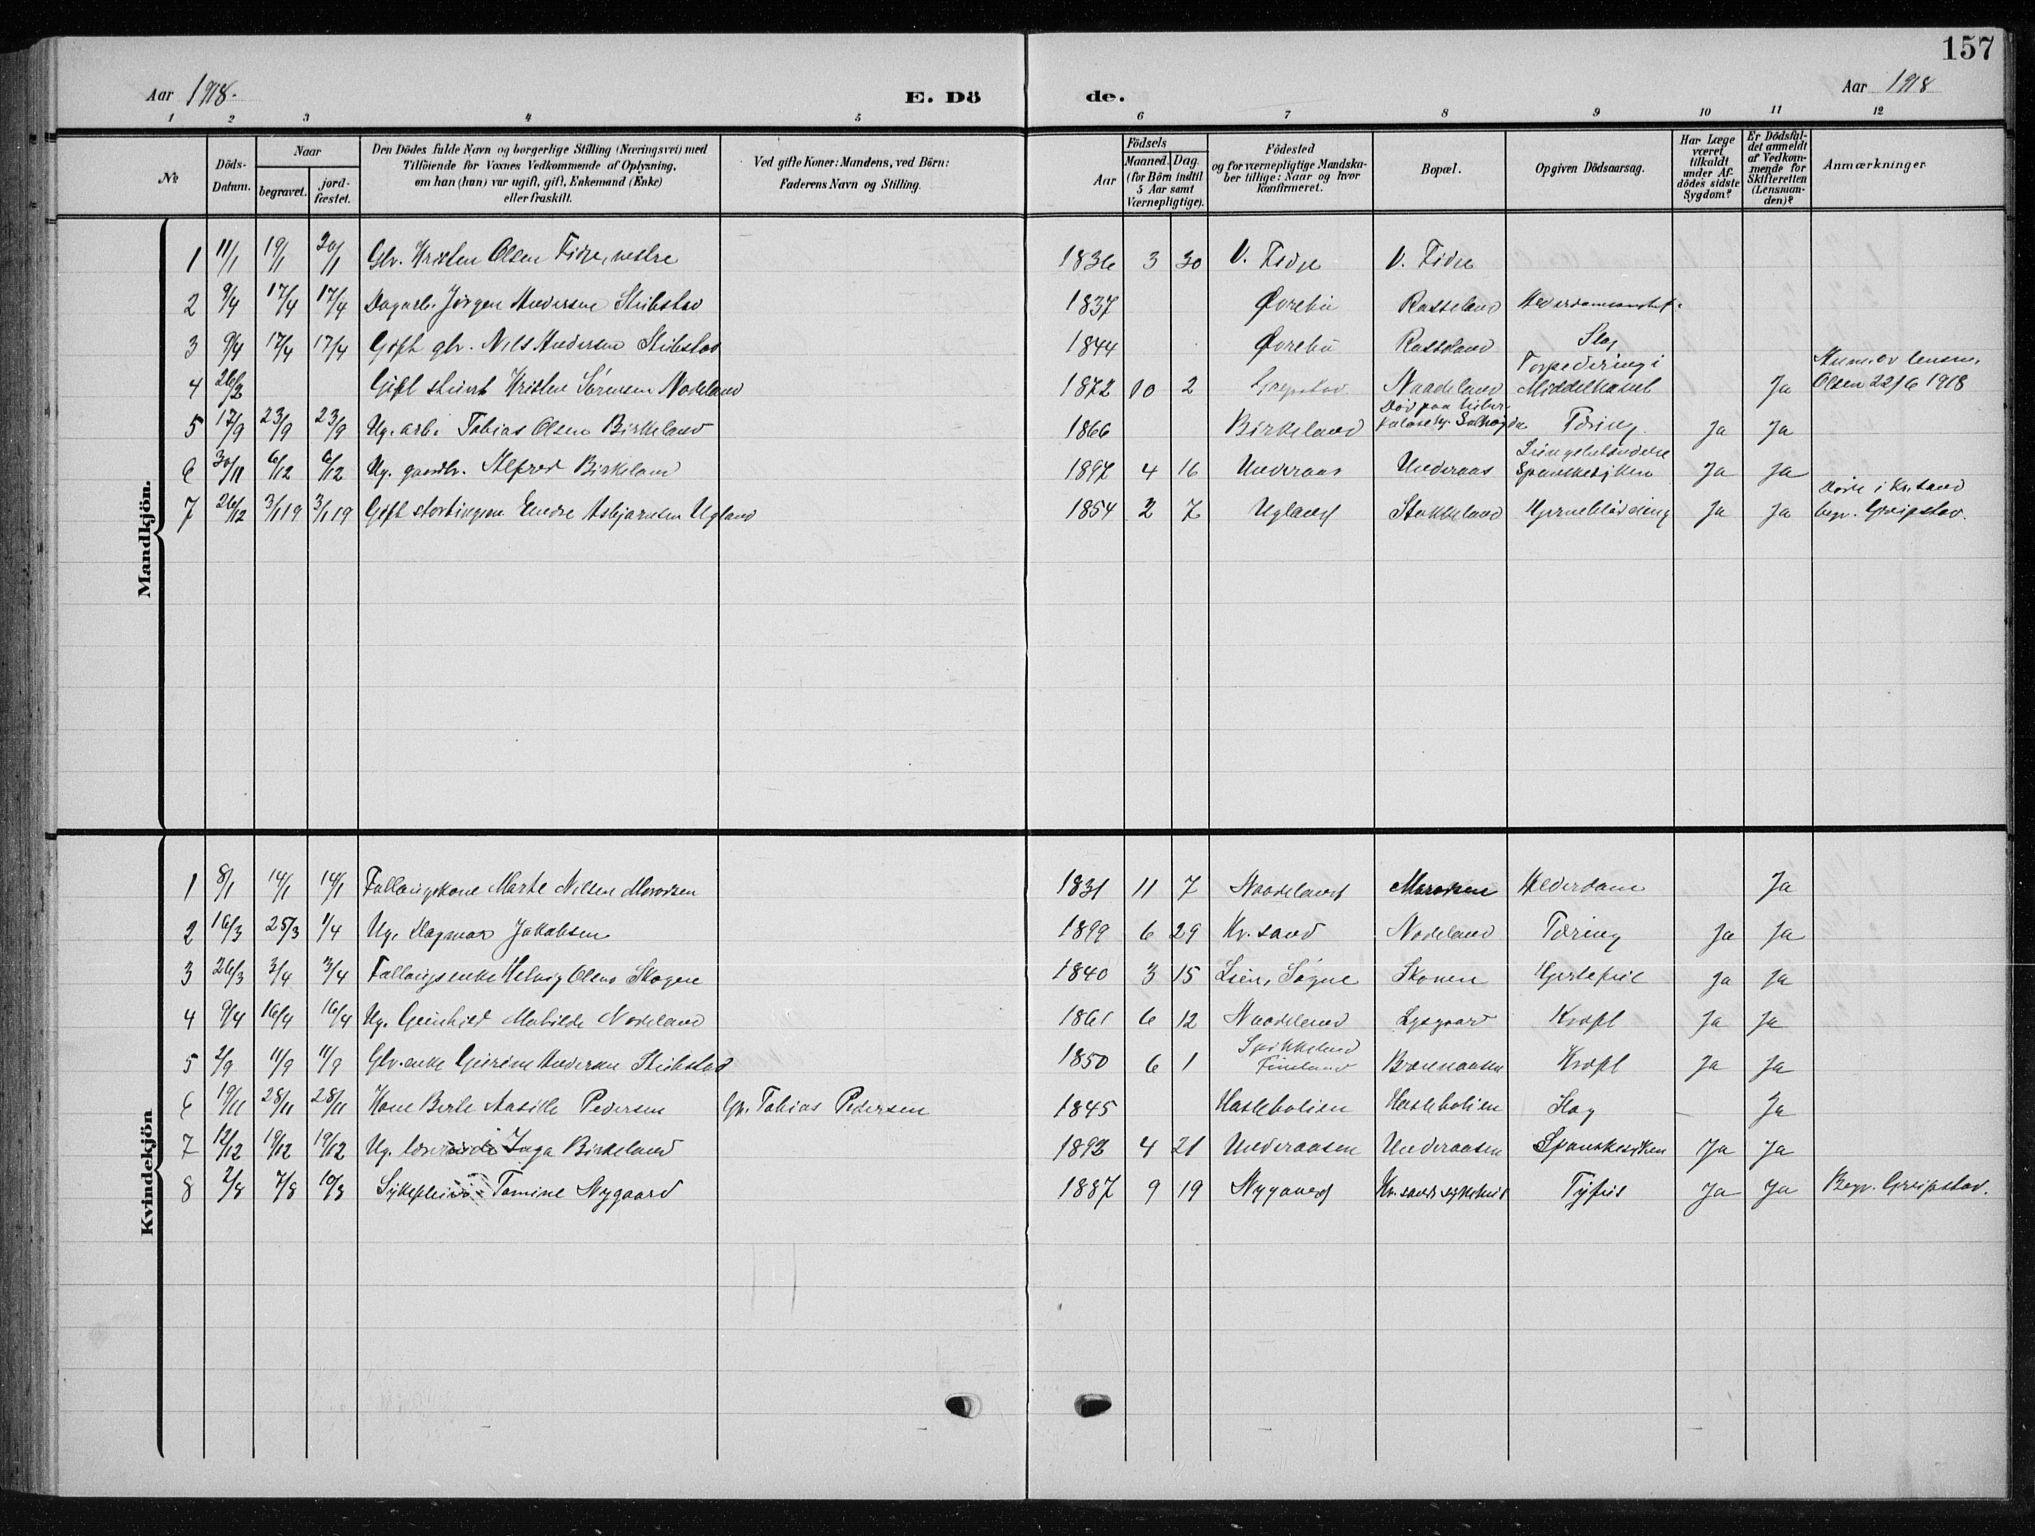 157
Aar 1918.
E. Dö
de.
Aar 1918
1 2 3 4 5 6 7 8 9 10 11 12
Nr.
Döds-Datum.
Naar
begravet.
jord-fæstet.
Den Dödes fulde Navn og borgerlige Stilling (Næringsvei) med
Tilföiende for Voxnes Vedkommende af Oplysning,
om han (hun) var ugift, gift, Enkemand (Enke)
eller fraskilt.
Ved gifte Koner: Mandens, ved Börn:
Faderens Navn og Stilling.
Aar
Födsels
Maaned. Dag.
(for Börn indtil
5 Aar samt
Værnepligtige).
Födested
og for værnepligtige Mandska-
ber tillige: Naar og hvor
konfirmeret.
Bopæl.
Opgiven Dödsaarsag.
Har Læge
været
tilkaldt
under Af-
dödes sidste
Sygdom?
Er Dödsfal-
det anmeldt
af Vedkom-
mende for
Skifteretten
(Lensman-
den)?
Anmærkninger
Mandkjön.
1 11/1 19/1 20/1 Gbr. Kristen Olsen Fidje, vestre 1836 3 30 V. Fidje V. Fidje
2 9/4 17/4 17/4 Dagarb. Jörgen Andersen Stibstad 1837 Øvrebö Rosseland
3 9/4 17/4 17/4 Gift gbr. Nils Andersen Stibstad 1844 Øvrebö Rosseland Slag
4 26/2 Gift Kristen Sörensen Nodeland 1872 10 2 Greipstad Naadeland Torpedering i Middelhavet Ja Anm. av lensm. Olsen 22/6 1918
5 17/9 23/9 23/9 Ug. arb. Tobias Olsen Birkeland 1866 Birkeland Död paa Tæring Ja Ja
6 30/11 6/12 6/12 Ug. gaardbr. Alfred Birkeland 1897 4 16 Underaas Underaas Spanskesyken Ja Ja
7 26/12 3/1 19 3/1 19 Gift stortingsm Endre Asbjørnsen Ugland 1854 2 7 Ugland Stokkeland Hjerneblödning Ja Ja Döde i Kr.sand begr. Greipstad.
Kvindekjön
1 8/1 14/1 14/1 Marte Nilsen 1831 11 7 Naadeland Alderdom Ja
2 16/3 25/3 1/4 Ug. Dagmar Jakobsen 1899 6 29 Kr.sand Nodeland Tæring Ja Ja
3 26/3 3/4 3/4 Helvig Olsen Skogen 1840 3 15 Lien, Søgne Hjertefeil Ja Ja
4 9/4 16/4 16/4 Ug. Gunhild Mathilde Nodeland 1861 6 12 Naadeland Lysgaard Kræft Ja Ja
5 2/9 11/9 11/9 Gbr. enke Andersen Stibstad 1850 6 1 Finsland Kræft Ja Ja
6 19/11 28/11 28/11 Kone Berte Aasille Pedersen Gbr. Tobias Pedersen 1845 Hasleholien Hasleholien Slag – Ja
7 12/12 19/12 19/12 Ug. lærerinde Inga Birkeland 1892 4 21 Underaasen Underaasen Spanskesyken Ja Ja
8 2/8 7/8 10/8 Tomine Nygaard 1887 9 19 Nygaard Kr.sands sykehus Tyfus Ja Ja Begr. Greipstad.